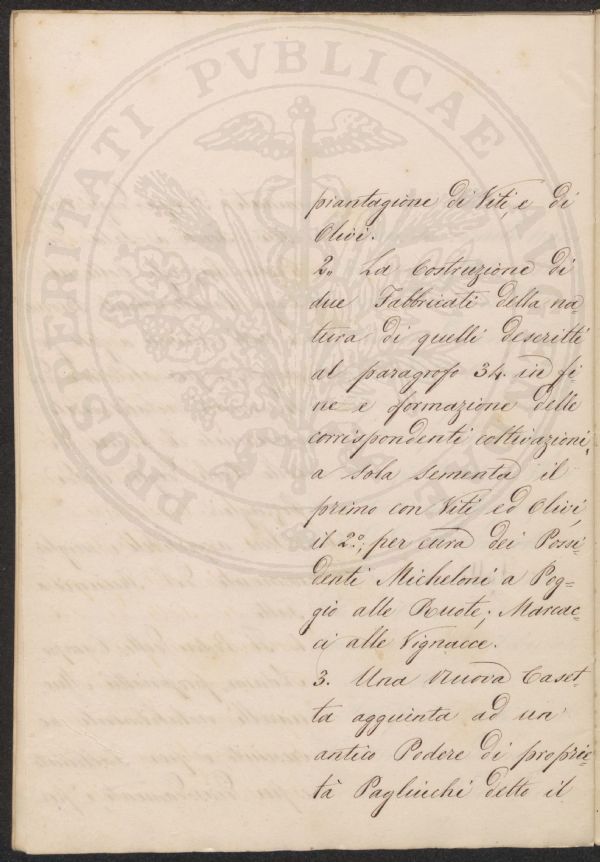 PROSPERITATI PVBLICAE AVGENDAE
piantagione di Viti, e di
Olivi.
2.. La Costruzione di
due Fabbricati della na=
tura di quelli descritti
al paragrofo 34. in fi=
ne e formazione delle
corrispondenti coltivazioni,
a sola sementa il
primo con Viti ed Olivi,
il 2.º; per cura dei Possi=
denti Micheloni a Pog=
gio alle Ruote; Marcac=
ci alle Vignacce.
3. Una nuova Caset=
ta aggiunta ad un
antico Podere di proprie=
tà Pagliuchi detto il